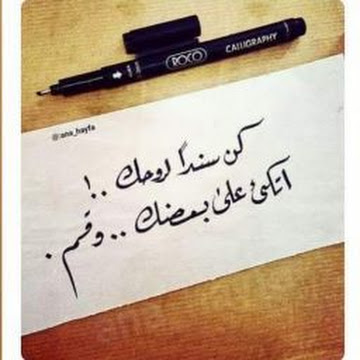 ROCO CALLIGRAPHY
@:ana_hayfa
كن سنداً لروحك ..!
اتكئ على بعضك .. وقم .